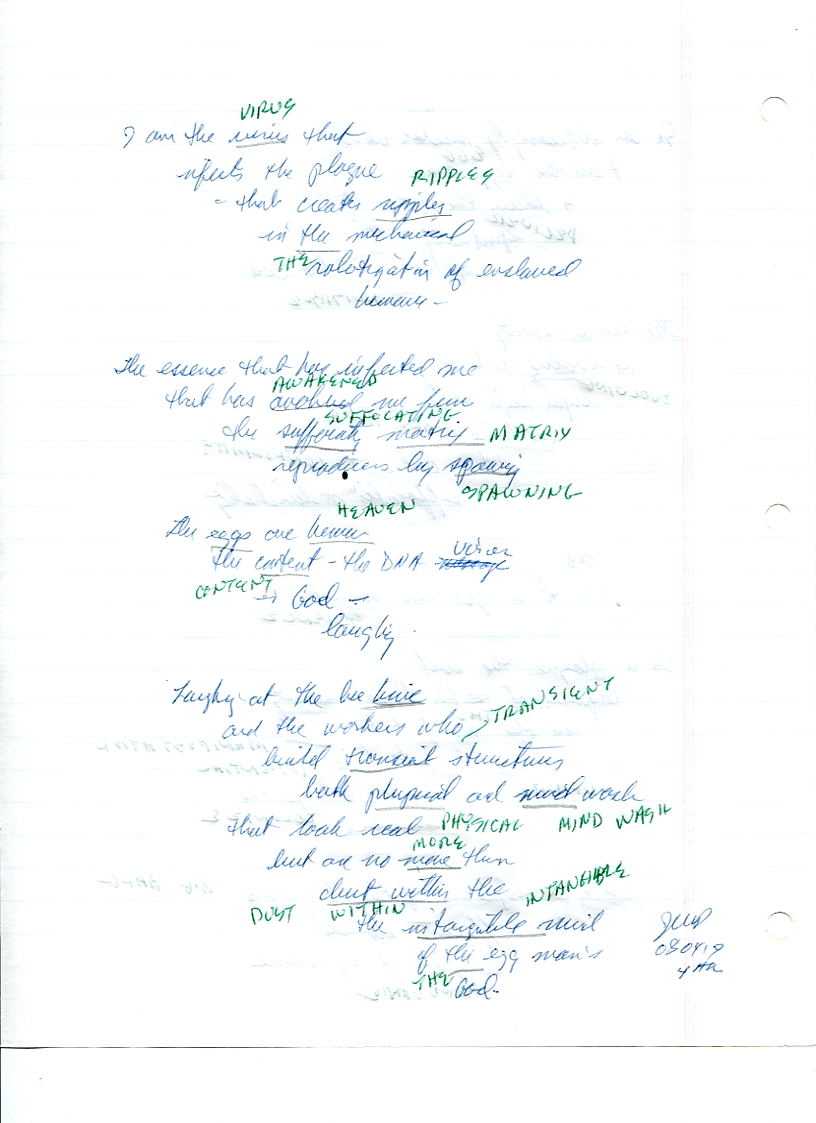 VIRUS
I am the virus that
infects the plague RIPPLES
- that creates ripples
in the mechanical
THE robotization of enslaved
humans -
The essence that has infected me
AWAKENED
that has awakened me from
SUFFOCATING
the suffocating matrix MATRIX
reproduces by spawning
SPAWNING
HEAVEN
The eggs are heaven
the content - the DNA voices
CONTENT
is God -
laughing
Laughing at the bee hive
and the workers who TRANSIENT
build transient structures
both physical and mind wash
that look real PHYSICAL MIND WASH
MORE
but are no more than
dust within the INTANGIBLE
DUST WITHIN
the intangible mind
of the egg man's
THE God.
080419
4 AM